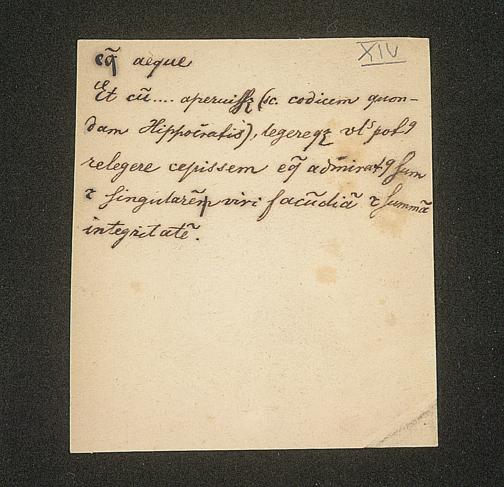 XIV
eq̃ aeque
Et cũ.... aperuissꝫ (sc. codicem quon-
dam Hippocratis), legereqꝫ vlˢ potꝰ
relegere cepissem eq̃ admiratꝰ sum
⁊ singularẽ viri facũdiã ⁊ summã
integritatẽ.